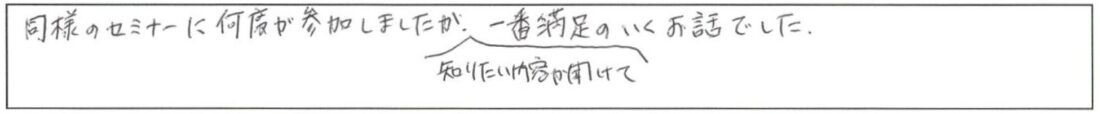 同様のセミナーに何度か参加しましたが、一番満足のいくお話でした.
知りたい内容が聞けて